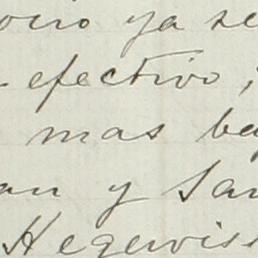 ya se
efectivo,
mas ba
an y San
Hegewis